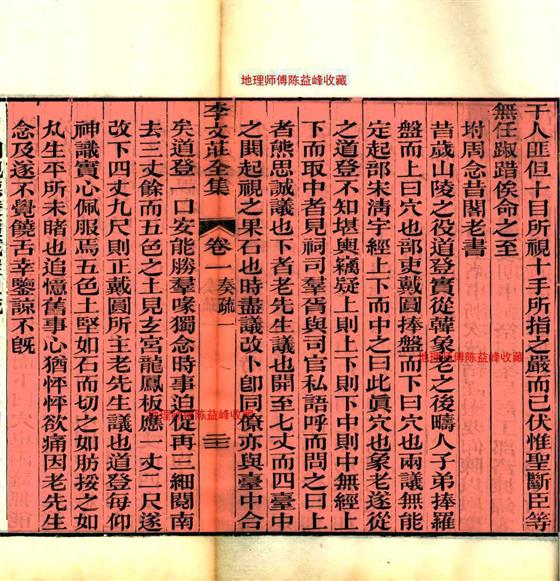 地理师傅陈益峰收藏
千人匪但十目所視十手所指之嚴而已伏惟聖斷臣等
無任踧踖俟命之至
坿周念昔閣老書
昔歲山陵之役道登實從韓象老之後疇人子弟捧羅
盤而上曰穴也部吏戴圓捧盤而下曰穴也兩議無能
定起部宋清字經上下而中之曰此眞穴也象老遂從
之道登不知堪輿竊疑上則上下則下中則中無經上
下而取中者見祠司羣胥與司官私語呼而問之曰上
者熊思誠議也下者老先生議也開至七丈而四臺中
之閧起視之果石也時盡議改卞卽同僚亦與臺中合
李文莊全集
卷一
奏疏一
三三
矣道登一口安能勝羣喙獨念時事泊從再三細閱南
去三丈餘而五色之土見玄宮龍鳳板應一丈二尺遂
改下四丈九尺則正戴圓所主老先生議也道登每仰
神識實心佩服焉五色土堅如石而切之如肪接之如
灮生平所未睹也追憶舊事心猶怦怦欲痛因老先生
念及遂不覺饒舌幸鑒諒不旣
地理师傅陈益峰收藏
地理师傅陈益峰收藏